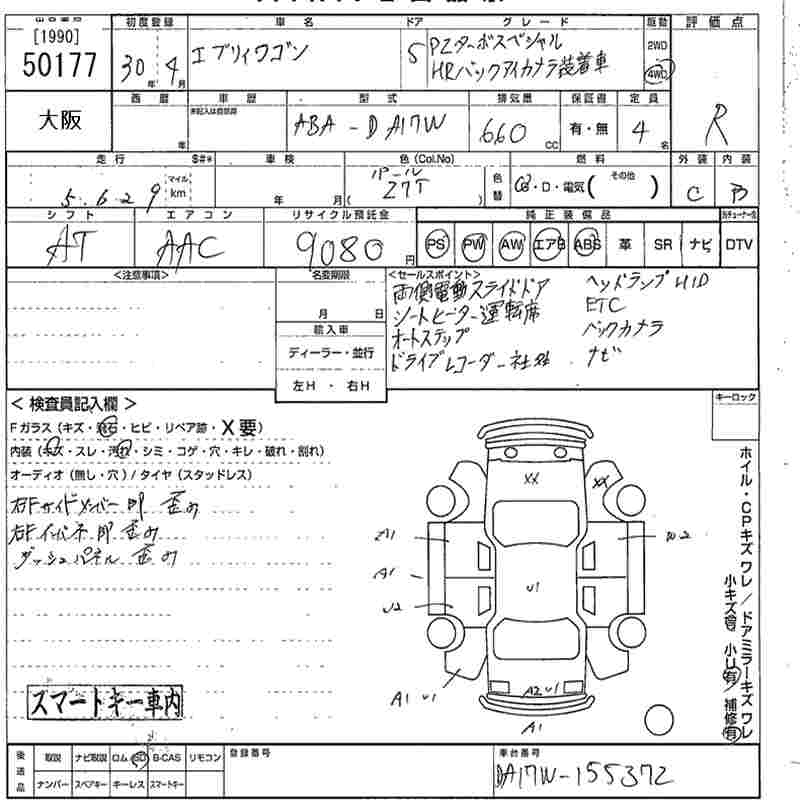 [1990]
50177
初度登録
30年 4月
車名
エブリィワゴン
ドア
5
グレード
PZターボスペシャル
HRバックアイカメラ装着車
駆動
2WD
4WD
評価点
R
大阪
西暦
年
車歴
未記入は自家用
型式
ABA-DA17W
排気量
660 CC
保証書
有・無
定員
4名
走行 S#*
5.6.2 9 マイル km
車検
年 月
色(Col.No)
パール
( Z7T )
色替
燃料
G・D・電気( その他 )
外装
C
内装
B
シフト
AT
エアコン
AAC
リサイクル預託金
9080円
純正装備品
PS PW AW エアB ABS 革 SR ナビ DTV
<注意事項>
名変期限
月 日
輸入車
ディーラー・並行
左H ・ 右H
<セールスポイント>
両側電動スライドドア
シートヒーター運転席
オートステップ
ドライブレコーダー社外
ヘッドランプHID
ETC
バックカメラ
ナビ
キーロック
< 検査員記入欄 >
Fガラス(キズ・飛石・ヒビ・リペア跡・X要)
内装(キズ・スレ・汚れ・シミ・コゲ・穴・キレ・破れ・割れ)
オーディオ(無し・穴)/タイヤ(スタッドレス)
右Fサイドメンバー 即 歪み
右Fインパネ 即 歪み
ダッシュパネル 歪み
XX
XX
A1
U2
U1
W2
A1 U1
A2 U1
A1
ホイル・CPキズワレ/ドアミラーキズワレ
小キズ有 小U有/補修有
スマートキー車内
後送品
取説 ナビ取説 ロム SD B-CAS リモコン
ナンバー スペアキー キーレス スマートキー
登録番号
車台番号
DA17W-155372